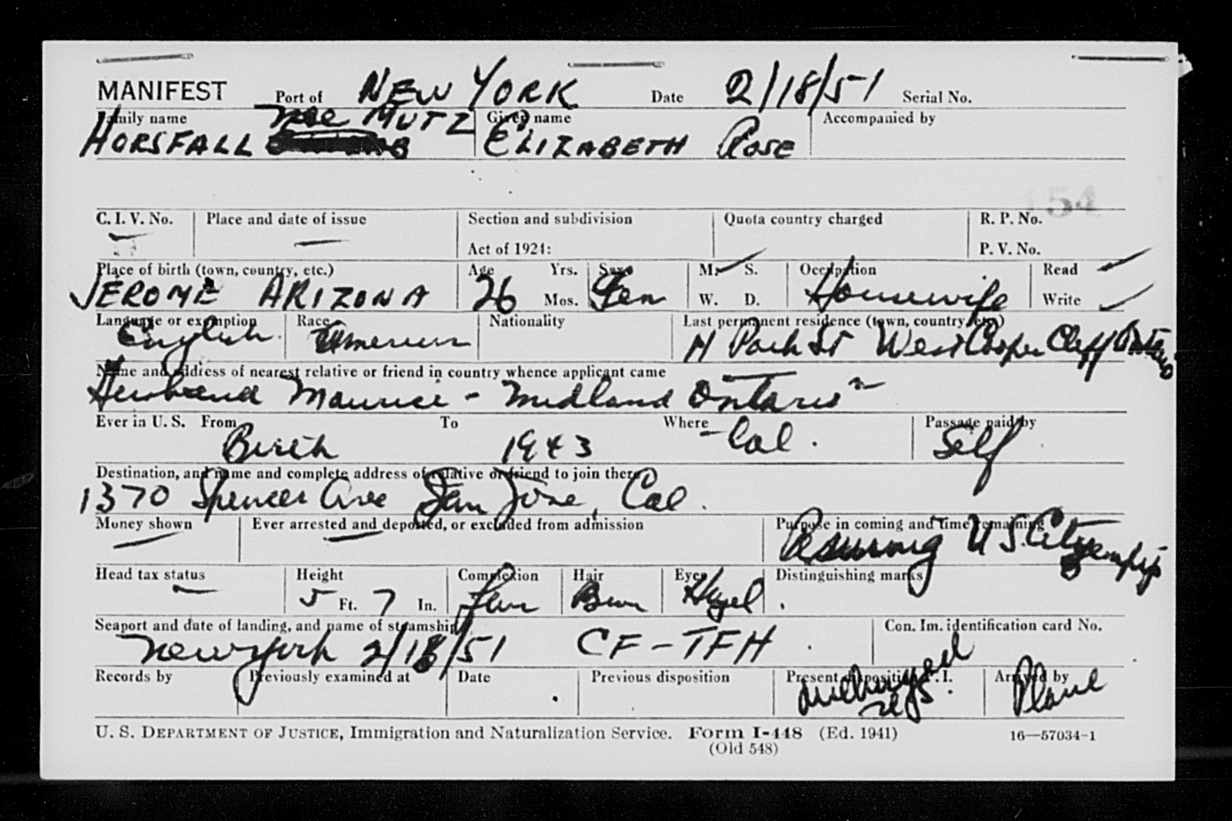 MANIFEST Port of NEW YORK Date 2/18/51 Serial No.
Family name nee MUTZ Given name Accompanied by
HORSFALL ELIZABETH Rose
154
C. I. V. No. Place and date of issue Section and subdivision Quota country charged R. P. No.
Act of 1924: P. V. No.
Place of birth (town, country, etc.) Age Yrs. Sex M. S. Occupation Read
JEROME ARIZONA 26 Mos. Fem W. D. Housewife Write
Language or exemption Race Nationality Last permanent residence (town, country, etc.)
English American Park St West Cooper Cliff Ontario
Name and address of nearest relative or friend in country whence applicant came
Husband Maurice - Midland Ontario
Ever in U. S. From To Where Passage paid by
Birth 1943 Cal. Self
Destination, and name and complete address of relative or friend to join there
1370 Spencer Ave San Jose, Cal.
Money shown Ever arrested and deported, or excluded from admission Purpose in coming and time remaining
U S. Citizenship
Head tax status Height Complexion Hair Eyes Distinguishing marks
5 Ft. 7 In. Fair Brn Hazel
Seaport and date of landing, and name of steamship Con. Im. identification card No.
New York 2/18/51 CF-TFH
Records by Previously examined at Date Previous disposition Present disposition I. Arrived by
Plane
U. S. DEPARTMENT OF JUSTICE, Immigration and Naturalization Service. Form I-448 (Ed. 1941) 16—57034-1
(Old 548)